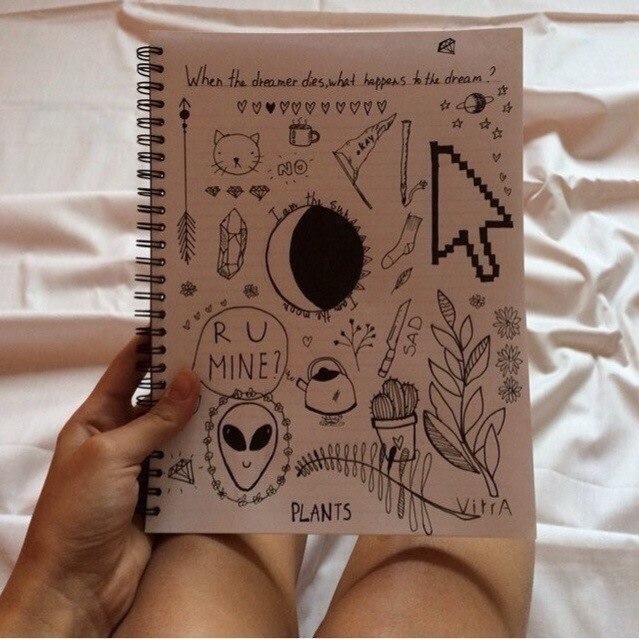 When the dreamer dies, what happens to the dream?
OKAY
NO
I am the sun
I am the moon
R U
MINE?
SAD
VitrA
PLANTS